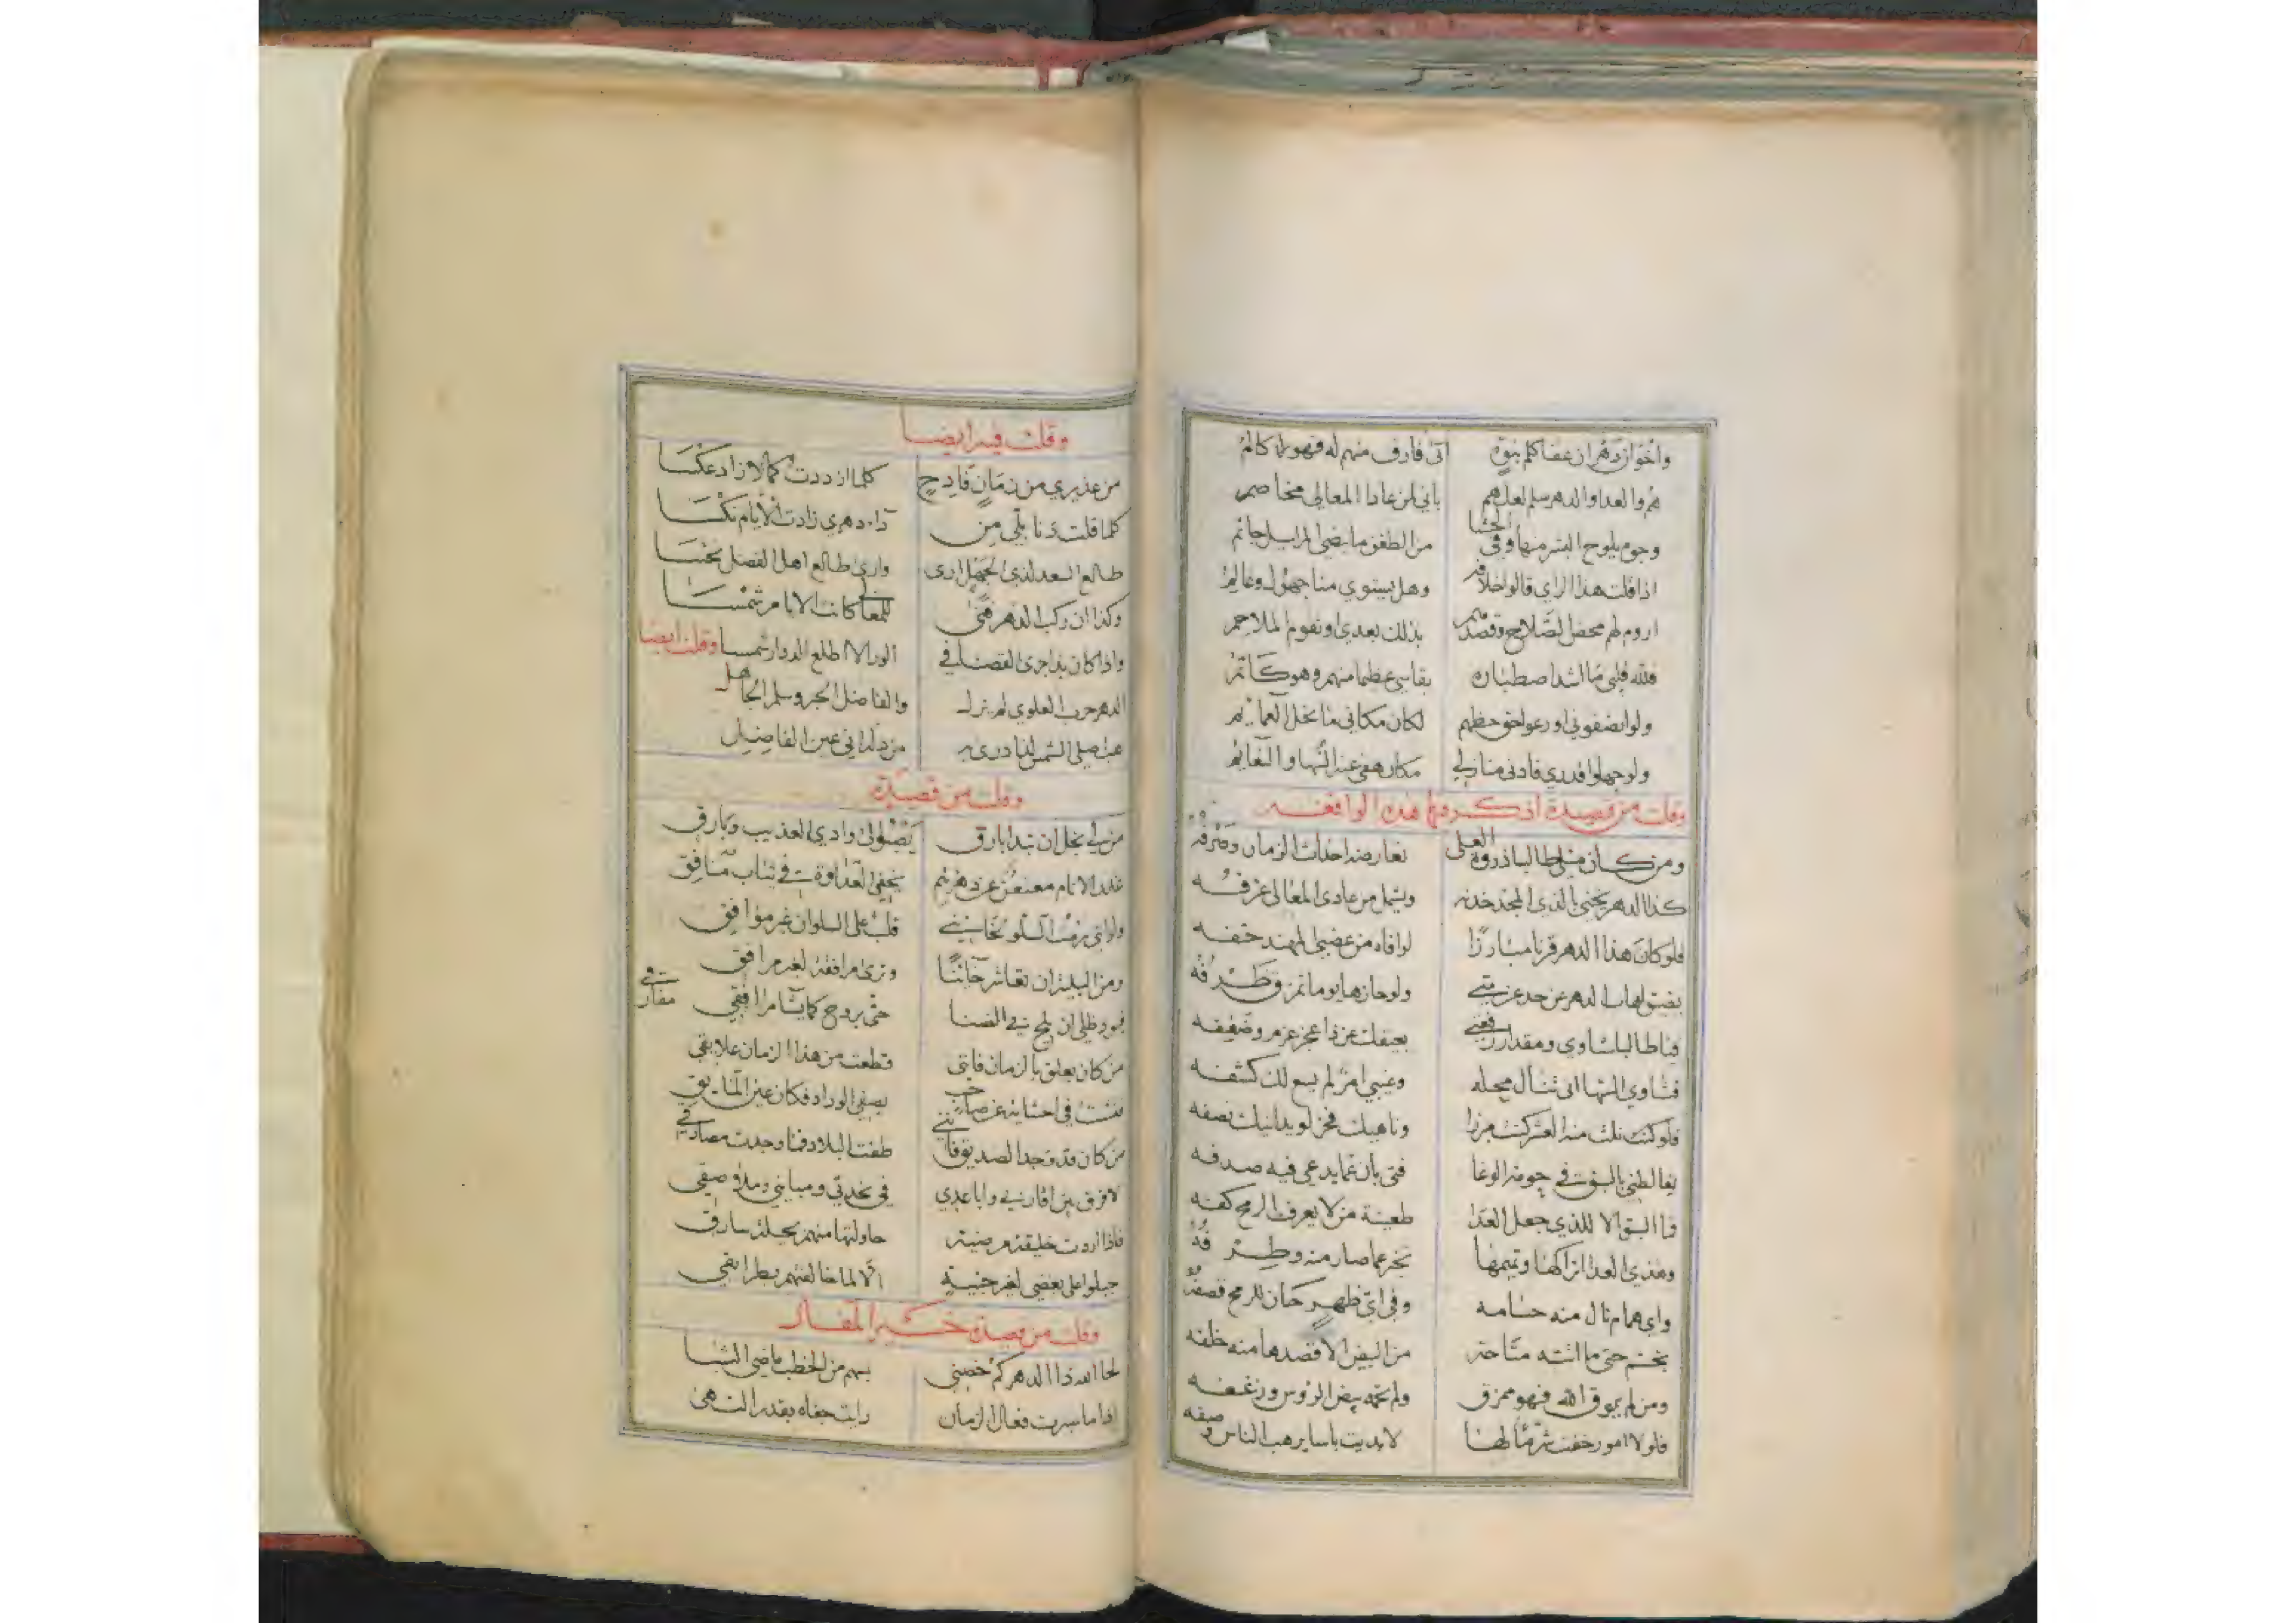 واخوان دهر ان عفا كلم بنوه اتى فارف منهم له فهو لما كالم
هم والعدا والدهر سلم لعلهم باني لمن عادا المعالي مخاصم
وجوم يلوح البشر منها وفي الحشا من الطغن ما يضي المراسل جاثم
اذا قلت هذا الراي قالوا خلافه وهل يستوي منا جهول وعالم
اروم لهم محض الصلاح وقصدهم بذلك بعدي او تقوم الملاحم
فلله قلبي ما اشد اصطباره يقاسي عظما منهم وهو كاتم
ولو انصفوني او رعوا حق حظهم لكان مكاني منا تحل العمايم
ولو جهلوا قدري فادنى منازلي مكان هفى عند النها والنعايم
وقلت من قصيدة اذكر فيها هذه الواقعه
ومن كان مثلي طالبا ذروة العلى تعارضه احداث الزمان وصرفه
كذا الدهر يخني بالذي المجد خدنه ويشمل من عادى المعالي عرفه
فلو كان هذا الدهر قرنا مبارزا لوافاه من عضبي المهند حتفه
يضيق اهاب الدهر عن حد عزمتي ولو حازها يوما تمزق ظرفه
فيا طالبا شاوي ومقدار رفعتي يعيقك عن ذا عجز عزم وضعفه
فشاوي السها انى تنال محله وغيبي امر لم يسع لك كشفه
فلو كنت نلت منه العشر كنت مبرزا وناهيك فخر لو يدانيك نصفه
يغالطني بالسبق في حومة الوغا فتى بان عما يدعي فيه صدفه
فما السبق الا للذي جعل العدا طعينة من لا يعرف الرمح كفه
وهذي العدا انزالها وتميمها تخبر عما صار منه وطرفه
واي همام نال منه حسامه وفي اي ظهر حان للرمح قصفه
تجشم حتى ما اتته متاحة من البيض الا قصدها منه خلفه
ومن لم يوق الله فهو ممزق ولم تحمه بيض الروس وزغفه
فلولا امور خفت شرمالها لابديت باسا يرهب الناس وصفه
وقلت فيه ايضا
من عذيري من زمان فادح كلما ازددت كمالا زاد عكسا
كلما قلت دنا بلي من داء دهري زادت الايام نكسا
طالع السعد لذي الجهل ارى وارى طالع اهل الفضل نحسا
وكذا ان ركب الدهر فتى للمعالي كانت الايام شمسا
واذا كان بذا جرى القضا في الورى لا اطلع الدوار شمسا وقلت ايضا
الدهر حرب العلوي لم يزل والفاضل الحر وسلم الجاهل
من ذا راني عين الفاضل
وقلت من قصيدة
من لي بخل ان تبدا بارق يصبو الى وادي العذيب وبارق
يخفي العداوة في ثياب منافق
ولو انني رمت السلو نحاسبني قلب على السلوان غير موافق
ومن البلية ان تعاشر خائنا وترى مرافقة لغير مرافق
فبود ظلي ان يلج في الضنا حتى يروح كما يشا مرافقي مفارقي
من كان يعلق بالزمان فانني قطعت من هذا الزمان علايقي
فتشت في احشائه عن صاحب يصفي الوداد فكان عين المايق
من كان قد وجد الصديق فانني طفت البلاد فما وجدت مصادقي
لا فرق بين اقاربي واباعدي في نجدتي ومبايني وملاصقي
فاذا اردت خليقة مرضية حاولتها منهم بحيلة سارق
جبلوا على بغضي لغير جنية الا لما خالفتهم بطرايقي
وقلت من قصيدة خير المقال
لحا الله ذا الدهر كم خصني بسهم من الخطب ماضي الشبا
اذا ما سبرت فعال الزمان رايت جفاه بقدر النهى